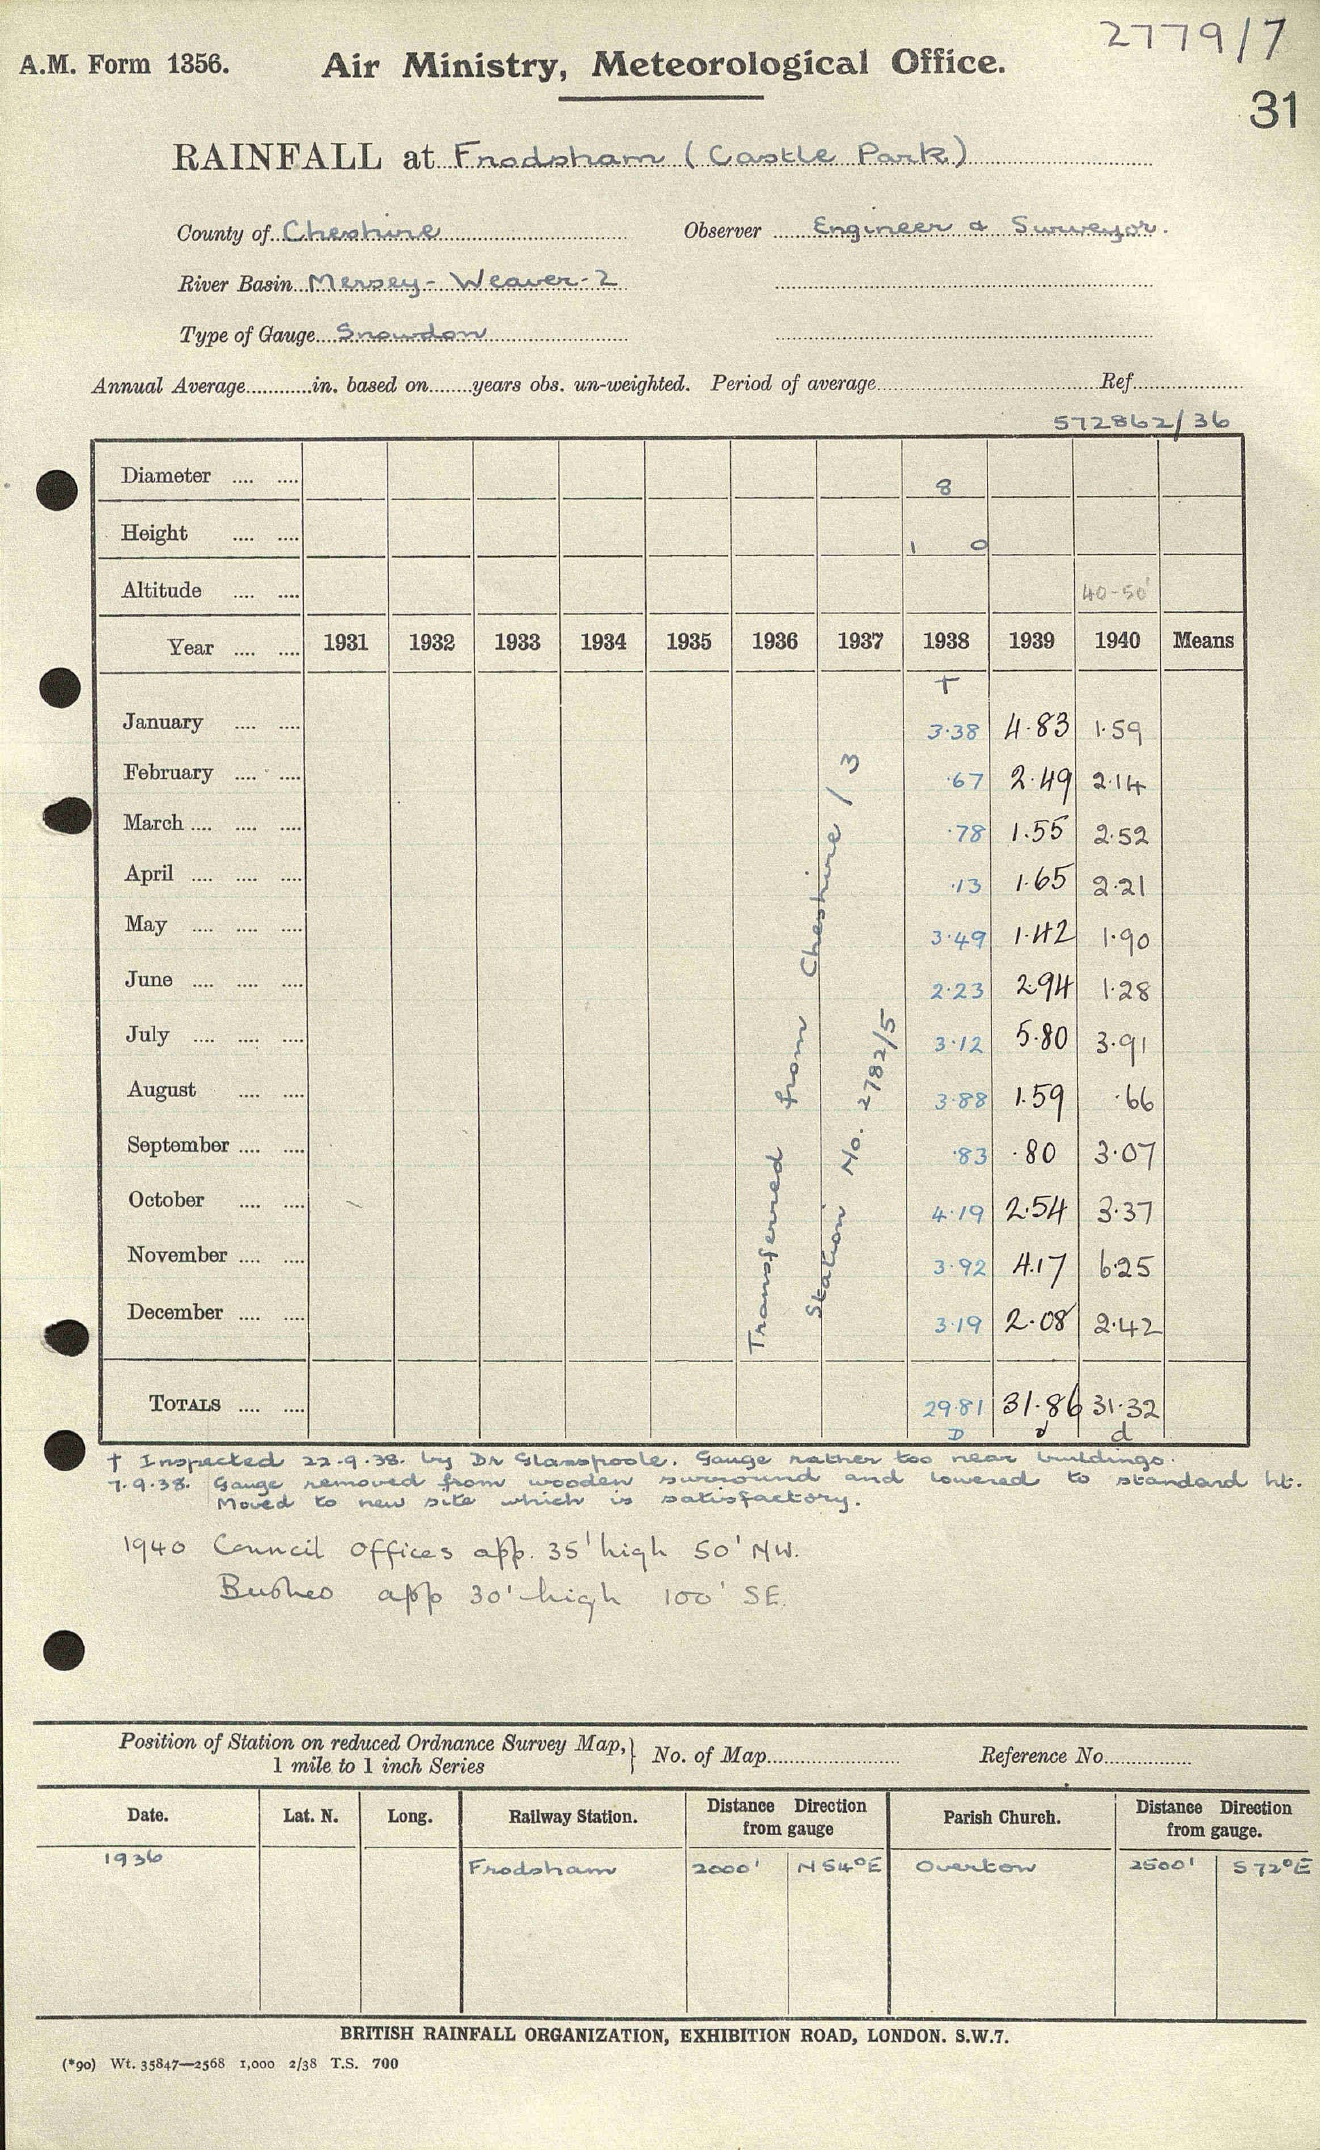 2779/7
A.M. Form 1356. Air Ministry, Meteorological Office.
31
RAINFALL at Frodsham (Castle Park)
County of Cheshire Observer Engineer & Surveyor.
River Basin Mersey - Weaver - 2
Type of Gauge Snowdon
Annual Average in. based on years obs. un-weighted. Period of average Ref.
572862/36
Diameter 8
Height 1 0
Altitude 40-50'
Year 1931 1932 1933 1934 1935 1936 1937 1938 1939 1940 Means
†
January 3.38 4.83 1.59
February .67 2.49 2.14
March .78 1.55 2.52
April .13 1.65 2.21
May 3.49 1.42 1.90
June 2.23 2.94 1.28
July 3.12 5.80 3.91
August 3.88 1.59 .66
September .83 .80 3.07
October 4.19 2.54 3.37
November 3.92 4.17 6.25
December 3.19 2.08 2.42
Transferred from Cheshire / 3
Station No. 2782/5
TOTALS 29.81 31.86 31.32
D d d
† Inspected 22.9.38. by Dr Glasspoole. Gauge rather too near buildings.
7.9.38. Gauge removed from wooden surround and lowered to standard ht.
Moved to new site which is satisfactory.
1940 Council Offices app. 35' high 50' NW.
Bushes app 30' high 100' SE.
Position of Station on reduced Ordnance Survey Map, 1 mile to 1 inch Series } No. of Map Reference No.
Date. Lat. N. Long. Railway Station. Distance Direction from gauge Parish Church. Distance Direction from gauge.
1936 Frodsham 2000' N 54°E Overton 2500' S 72°E
BRITISH RAINFALL ORGANIZATION, EXHIBITION ROAD, LONDON. S.W.7.
(*90) Wt. 35847—2568 1,000 2/38 T.S. 700